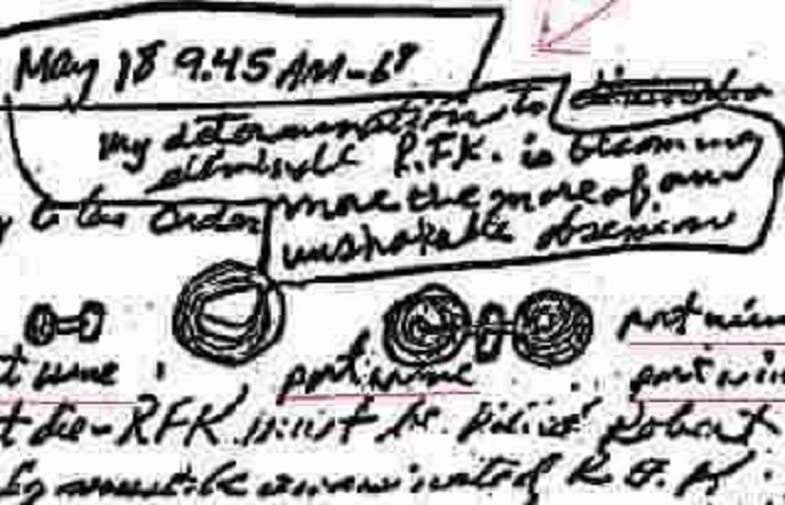 May 18 9.45 AM-68
my determination to
eliminate R.F.K. is becoming
more the more of an
unshakable obsession
to the order
port wine
port wine port wine
port wine
die - RFK must be killed Robert
must be assassinated R.F.K.